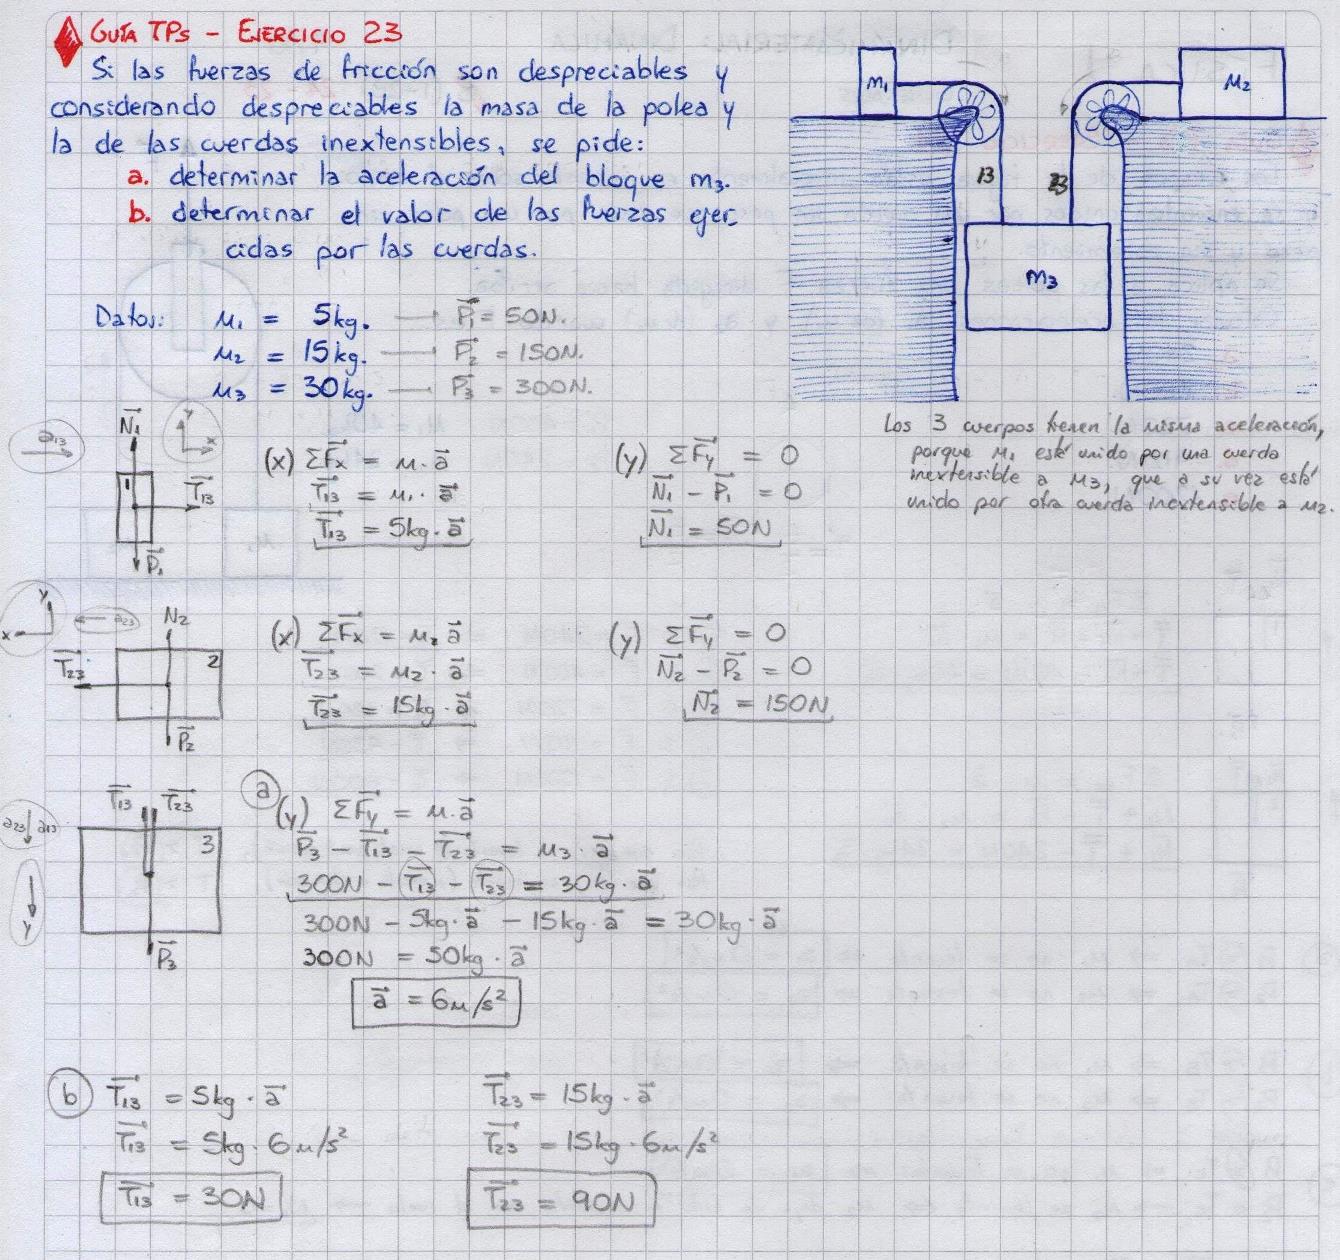 GUÍA TPs - EJERCICIO 23
Si las fuerzas de fricción son despreciables y
considerando despreciables la masa de la polea y
la de las cuerdas inextensibles, se pide:
a. determinar la aceleración del bloque m₃.
b. determinar el valor de las fuerzas ejer-
cidas por las cuerdas.
m₁
M₂
13
23
m₃
Datos: M₁ = 5kg. → P₁ = 50N.
M₂ = 15kg. → P₂ = 150N.
M₃ = 30kg. → P₃ = 300N.
Los 3 cuerpos tienen la misma aceleración,
porque M₁ esté unido por una cuerda
inextensible a M₃, que a su vez está
unido por otra cuerda inextensible a M₂.
a₁₃
N₁
y
x
1
T₁₃
P₁
(x) ΣFx = m · a
T₁₃ = m₁ · a
T₁₃ = 5kg · a
(y) ΣFy = 0
N₁ - P₁ = 0
N₁ = 50N
y
x
a₂₃
N₂
T₂₃
2
P₂
(x) ΣFx = m₂ a
T₂₃ = m₂ · a
T₂₃ = 15kg · a
(y) ΣFy = 0
N₂ - P₂ = 0
N₂ = 150N
T₁₃ T₂₃
a₂₃ a₁₃
3
y
P₃
a
(y) ΣFy = m · a
P₃ - T₁₃ - T₂₃ = m₃ · a
300N - T₁₃ - T₂₃ = 30kg · a
300N - 5kg · a - 15kg · a = 30kg · a
300N = 50kg · a
a = 6m/s²
b
T₁₃ = 5kg · a
T₁₃ = 5kg · 6m/s²
T₁₃ = 30N
T₂₃ = 15kg · a
T₂₃ = 15kg · 6m/s²
T₂₃ = 90N